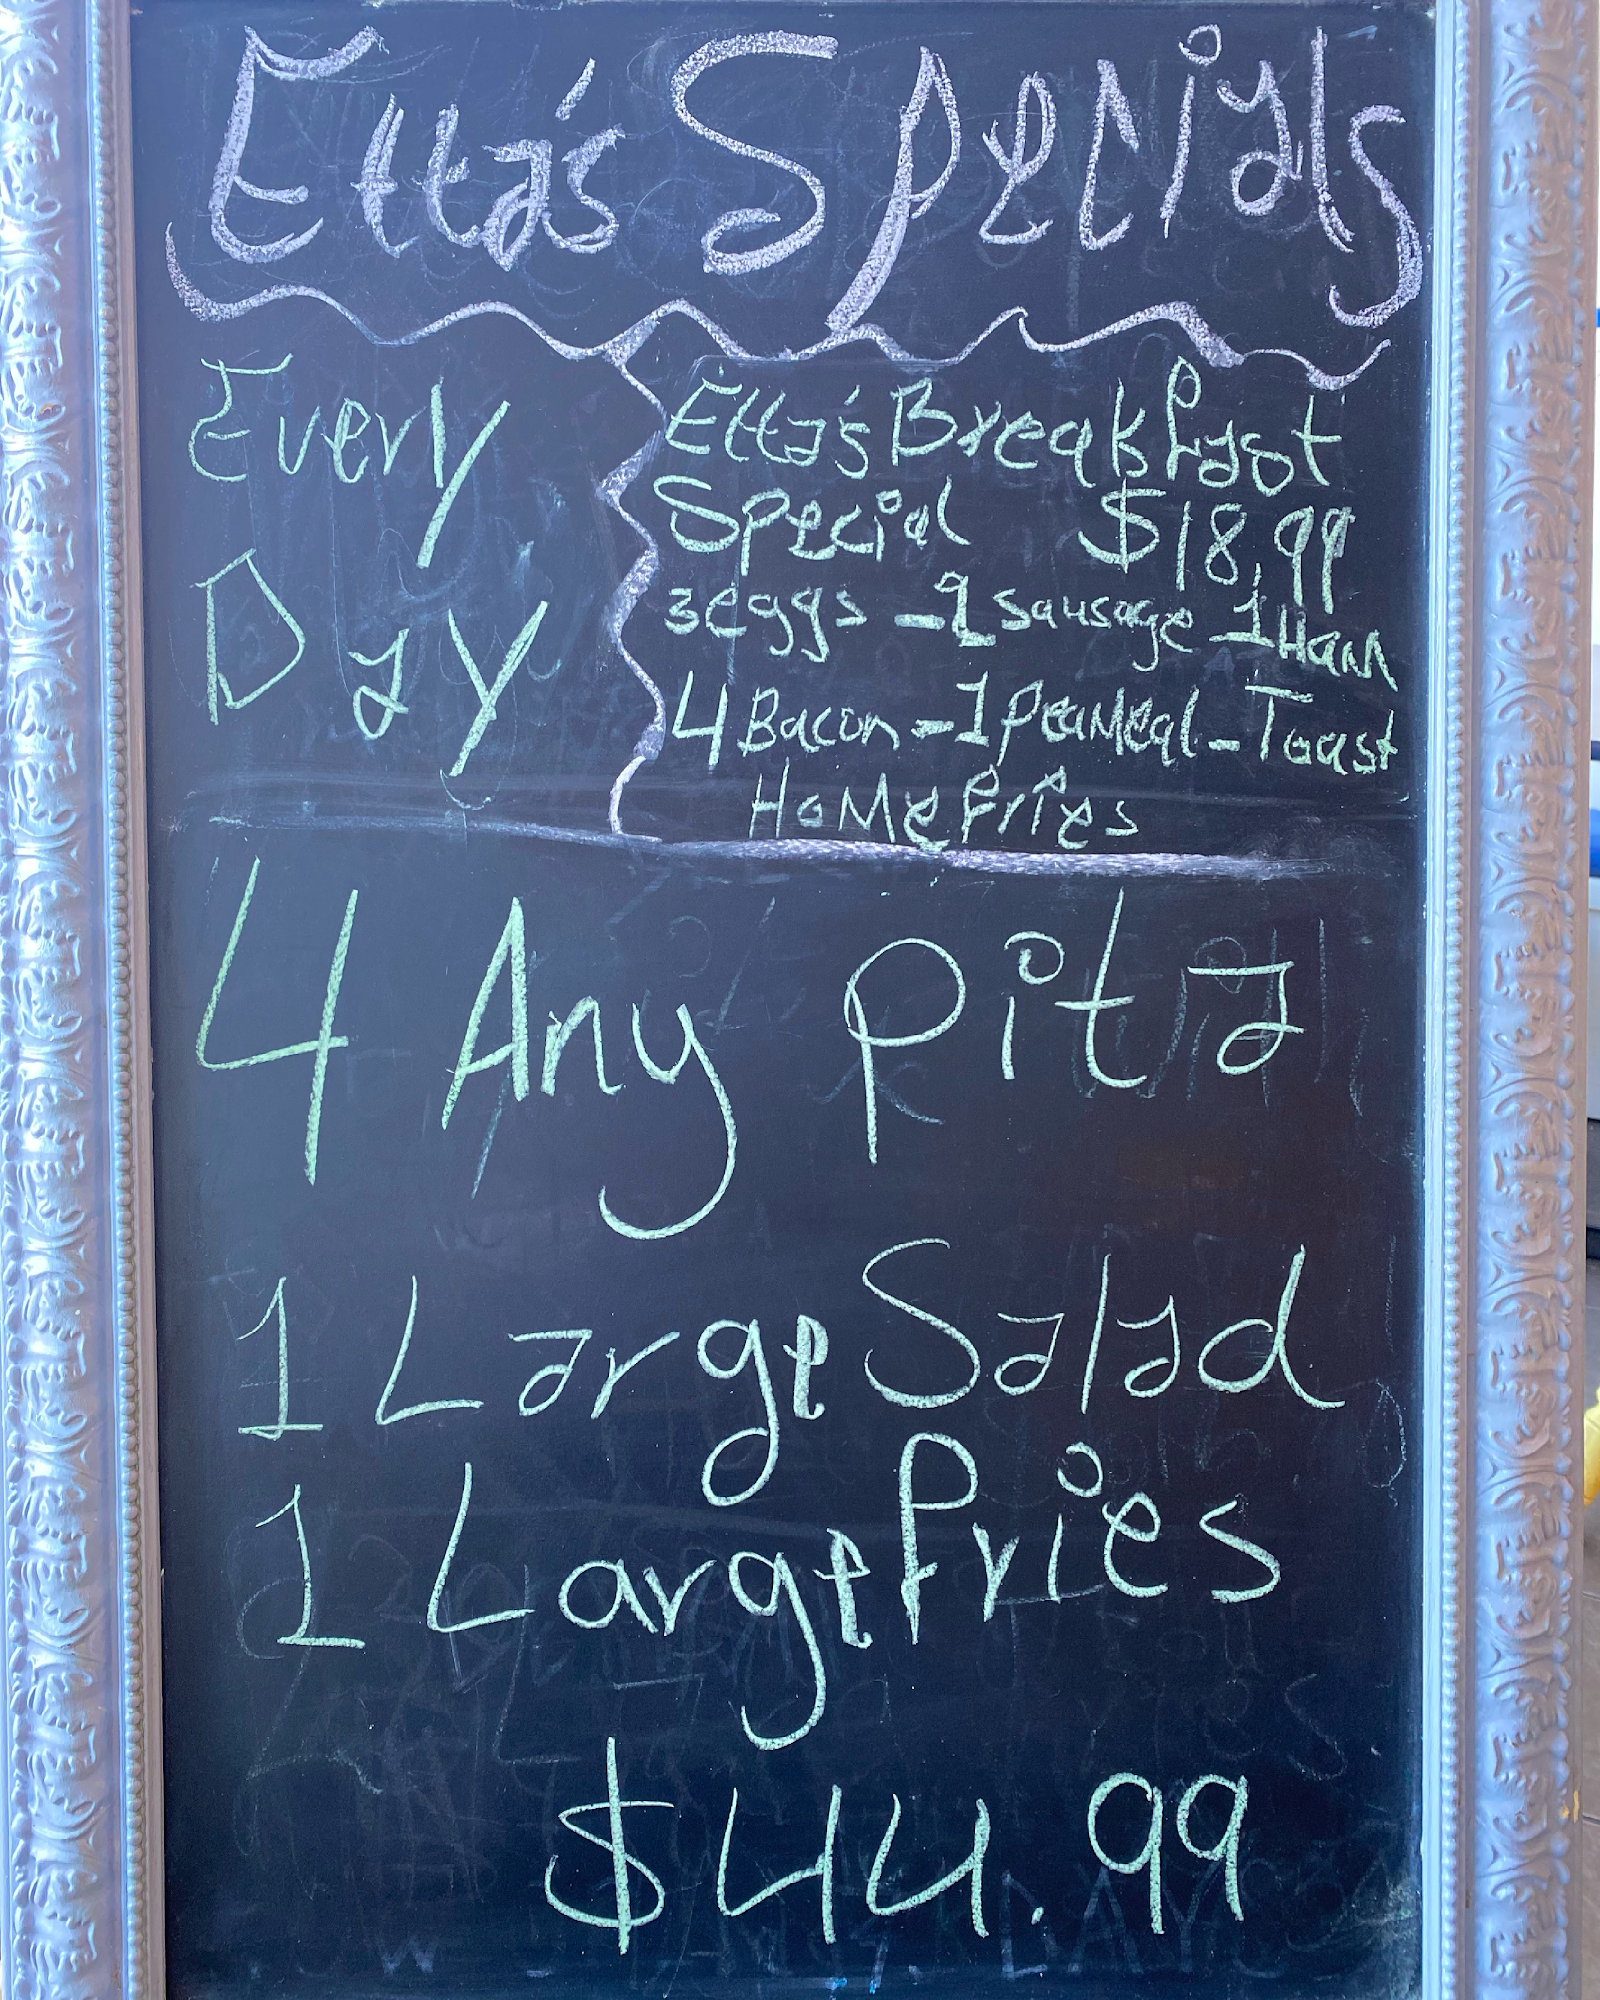 Etta's Specials
Every
Day
Etta's Breakfast
Special $18.99
3 eggs - 2 sausage 1 Ham
4 Bacon - 1 Peameal - Toast
Home fries
4 Any Pita
1 Large Salad
1 Large fries
$44.99